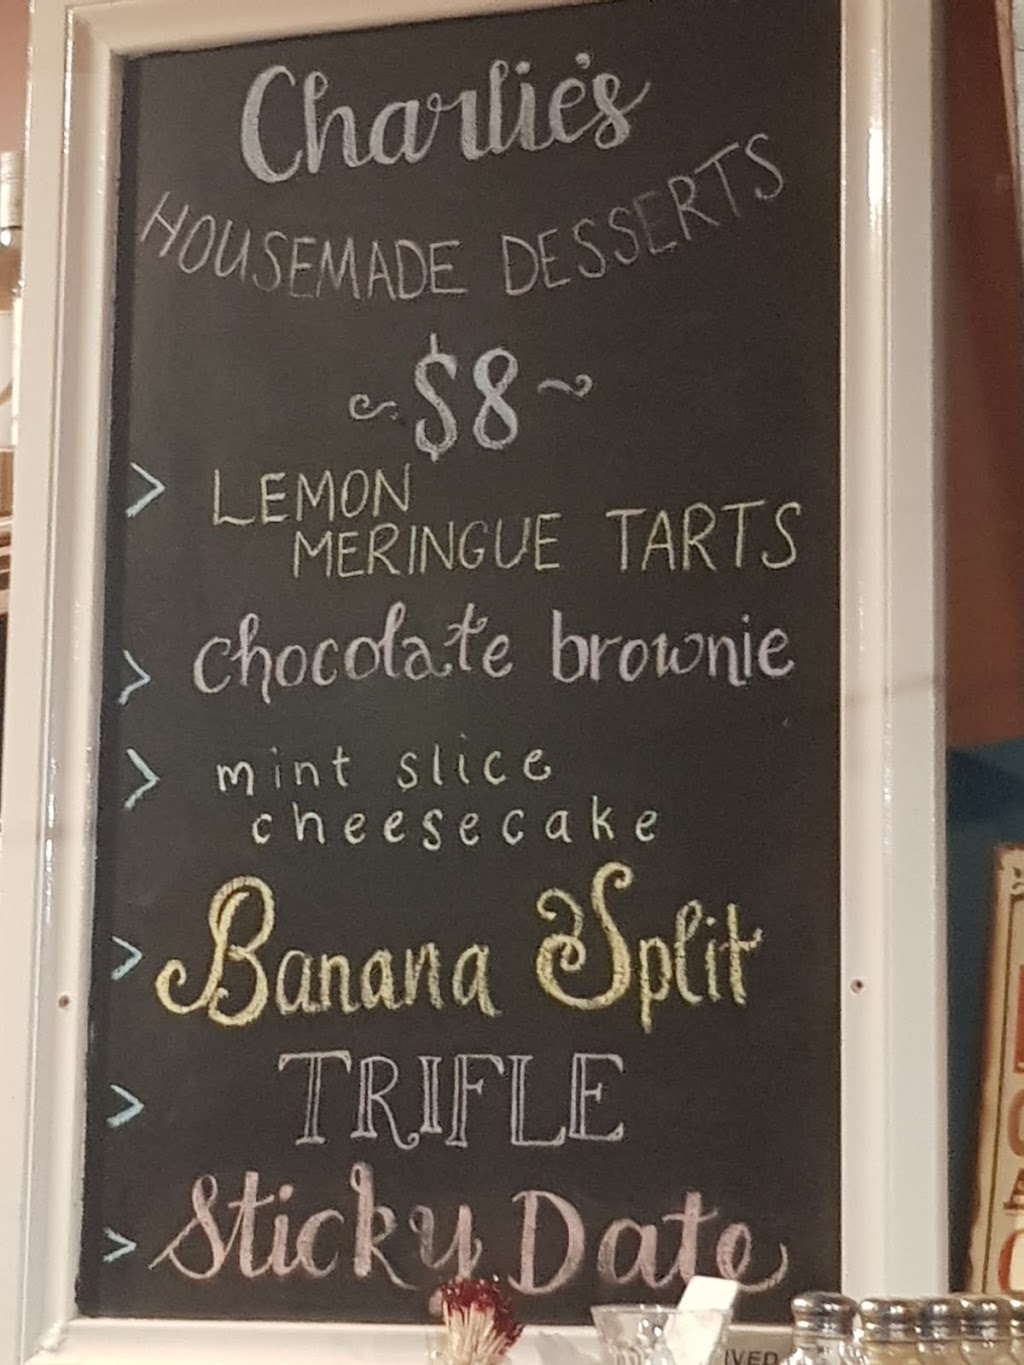 Charlie's
HOUSEMADE DESSERTS
~$8~
> LEMON
MERINGUE TARTS
> chocolate brownie
> mint slice
cheesecake
> Banana Split
> TRIFLE
> Sticky Date